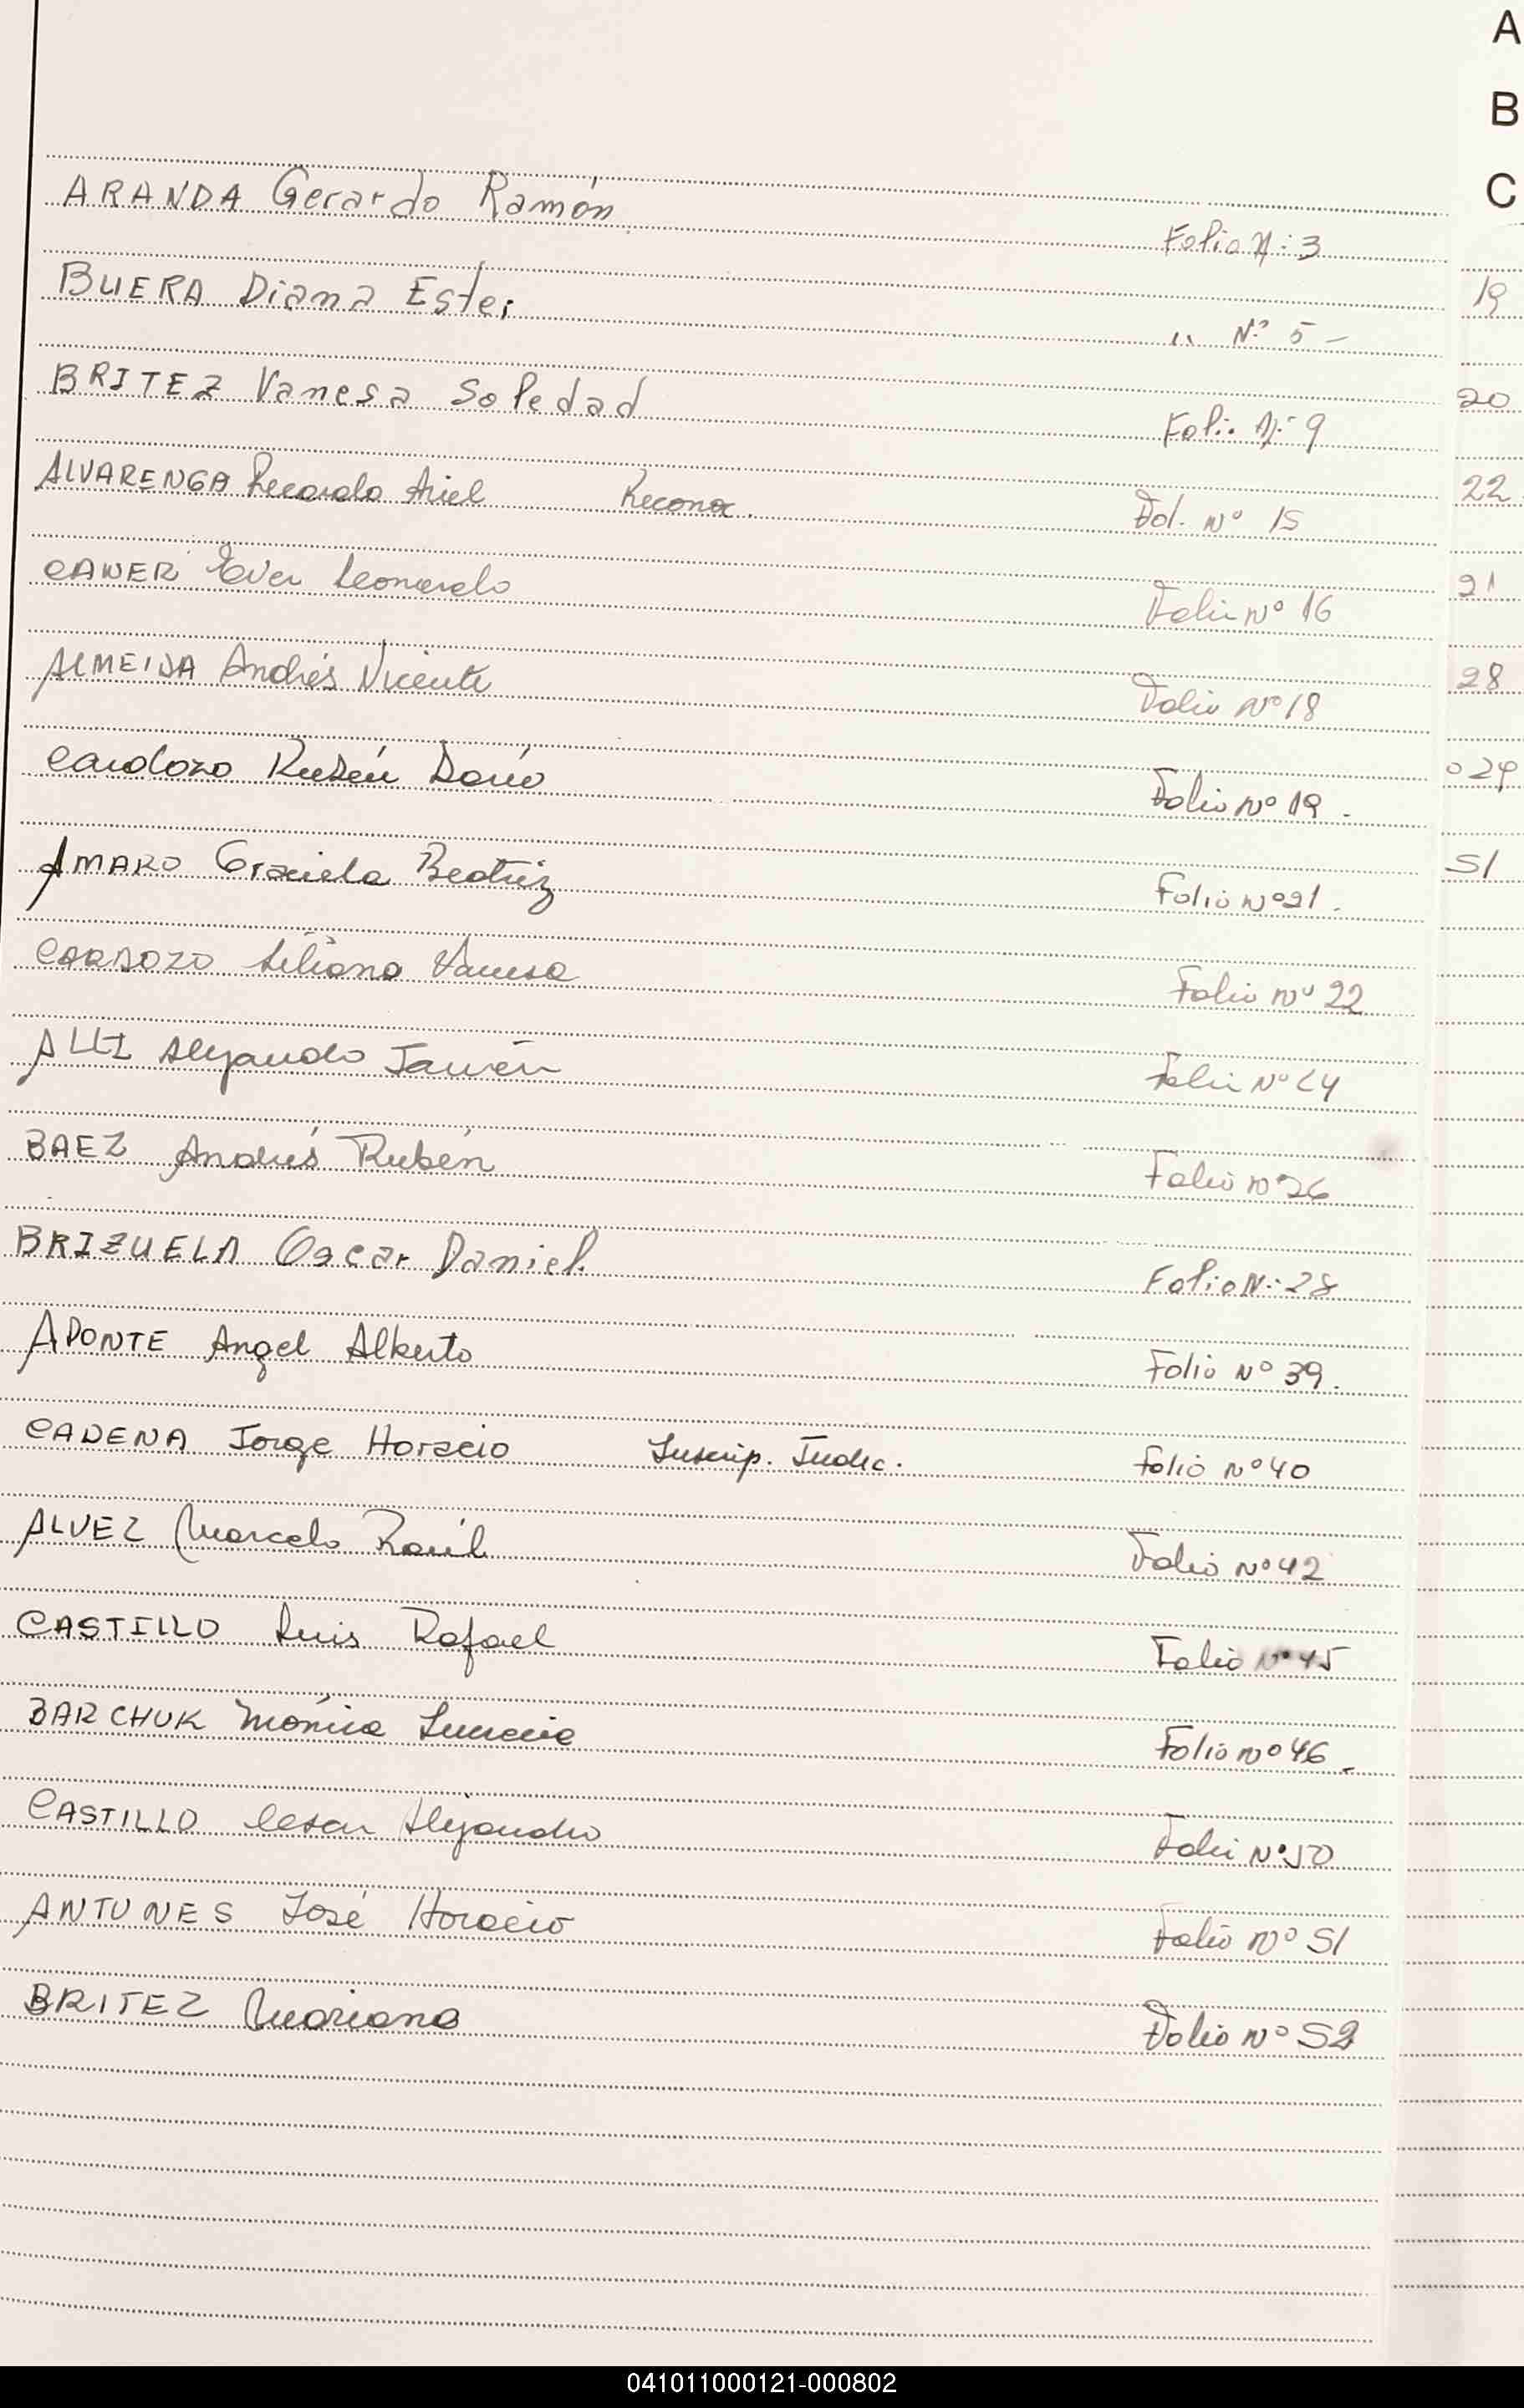 A
B
C
ARANDA Gerardo Ramón Folio Nº: 3
19
BUERA Diana Ester " Nº 5 -
20
BRITEZ Vanesa Soledad Folio Nº 9
22
ALVARENGA Ricardo Ariel Reconoc. Fol. Nº 15
21
CAWER Ever Leonardo Folio Nº 16
28
ALMEIDA Andrés Vicente Folio Nº 18
029
Cardozo Rubén Darío Folio Nº 19.
51
AMARO Graciela Beatriz Folio Nº 21.
CARDOZO Liliana Vanesa Folio Nº 22
Alejandro Folio Nº 24
BAEZ Andrés Rubén Folio Nº 26
BRIZUELA Oscar Daniel Folio Nº: 28
APONTE Angel Alberto Folio Nº 39.
CADENA Jorge Horacio Inscrip. Judic. Folio Nº 40
ALVEZ Marcelo Raúl Folio Nº 42
CASTILLO Luis Rafael Folio Nº 45
BARCHUK Mónica Lucrecia Folio Nº 46.
CASTILLO Cesar Alejandro Folio Nº 50
ANTUNES José Horacio Folio Nº 51
BRITEZ Mariana Folio Nº 52
041011000121-000802